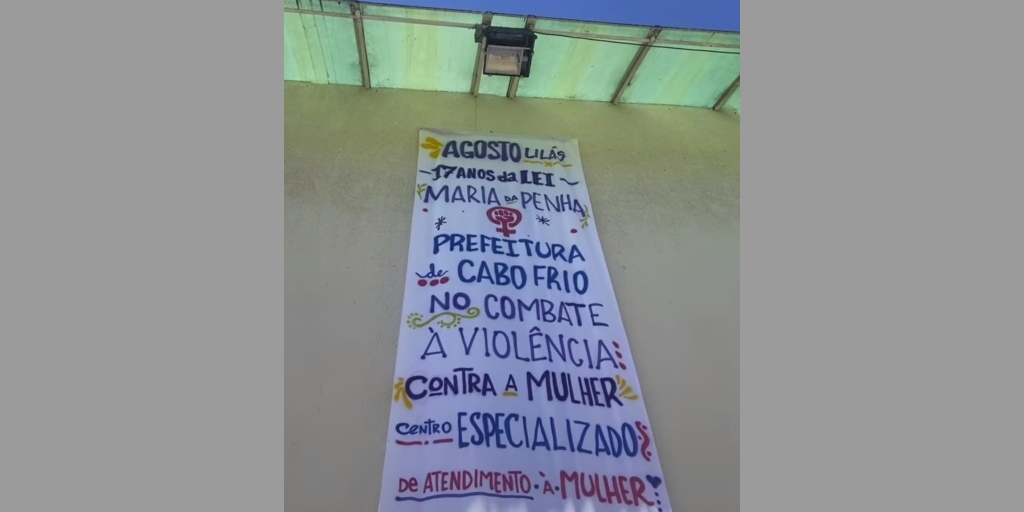 AGOSTO LILÁS
17 ANOS da LEI
MARIA DA PENHA
PREFEITURA
de CABO FRIO
NO COMBATE
À VIOLÊNCIA
CONTRA A MULHER
CENTRO ESPECIALIZADO
De ATENDIMENTO À MULHER